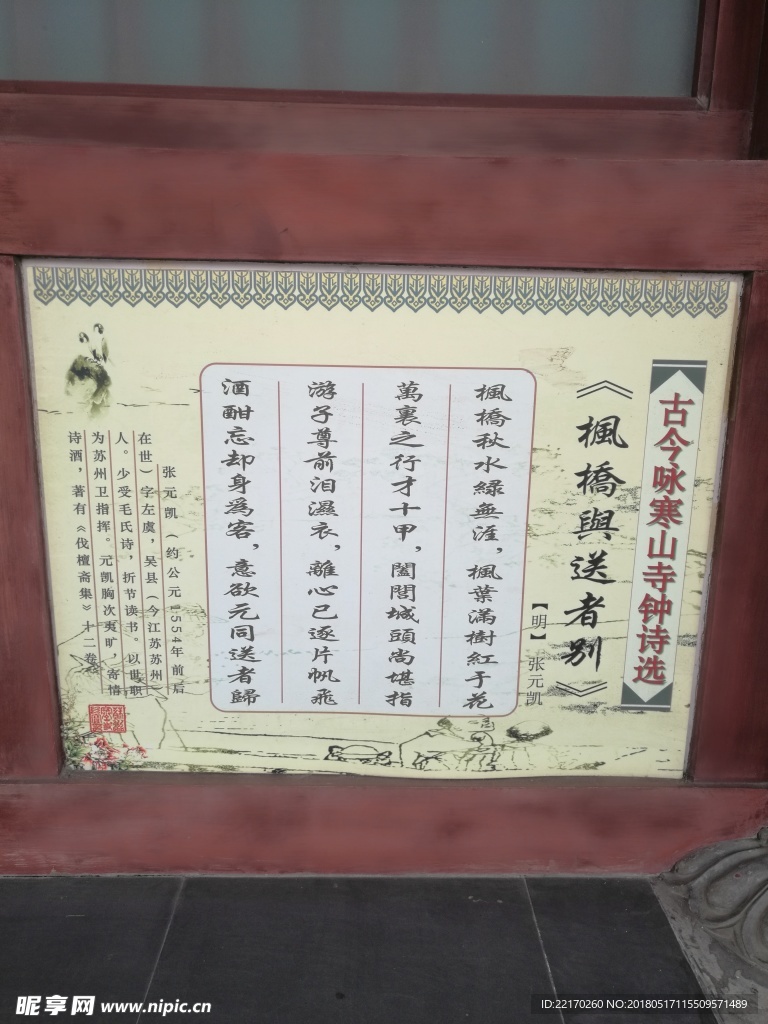 古今咏寒山寺钟诗选
《楓橋與送者别》
【明】张元凯
楓橋秋水緑無涯，楓葉滿樹紅于花
萬裏之行才十甲，闔閭城頭尚堪指
游子尊前泪濕衣，離心已逐片帆飛
酒酣忘却身爲客，意欲元同送者歸
张元凯（约公元1554年前后
在世）字左虞，吴县（今江苏苏州）
人。少受毛氏诗，折节读书。以世职
为苏州卫指挥。元凯胸次夷旷，寄情
诗酒，著有《伐檀斋集》十二卷。
昵享网 www.nipic.cn
ID:22170260 NO:20180517115509571489